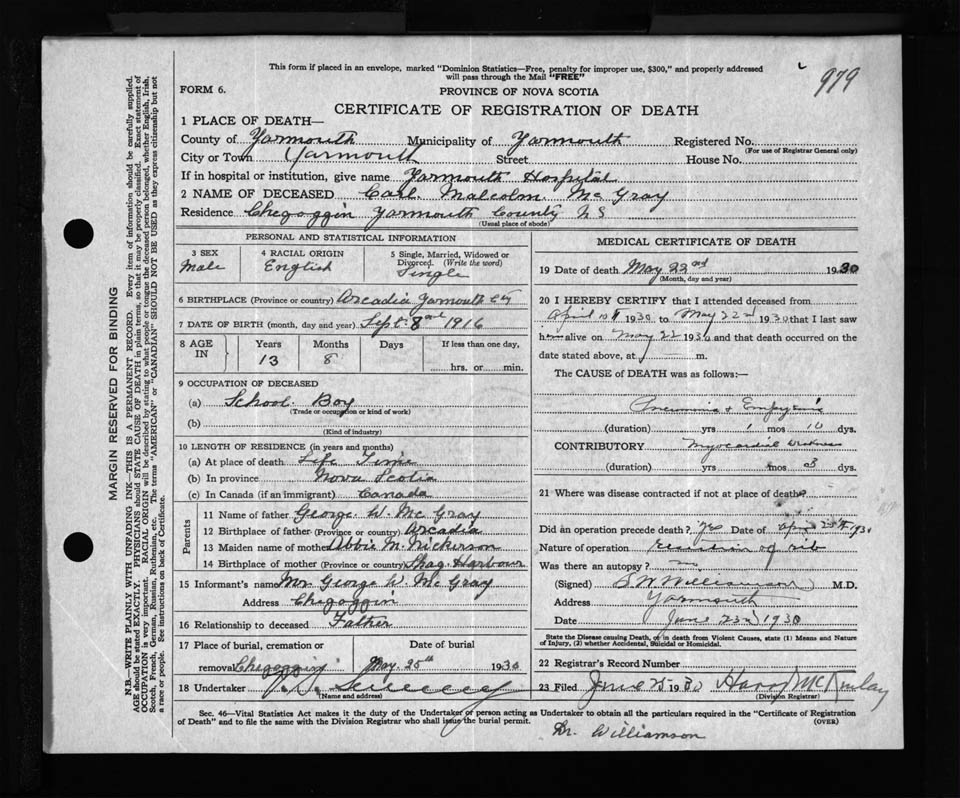 979
This form if placed in an envelope, marked "Dominion Statistics—Free, penalty for improper use, $300," and properly addressed
will pass through the Mail "FREE"
FORM 6.
PROVINCE OF NOVA SCOTIA
CERTIFICATE OF REGISTRATION OF DEATH
MARGIN RESERVED FOR BINDING
N.B.—WRITE PLAINLY WITH UNFADING INK—THIS IS A PERMANENT RECORD. Every item of information should be carefully supplied.
AGE should be stated EXACTLY. PHYSICIANS should STATE CAUSE OF DEATH in plain terms, so that it may be properly classified. Exact statement of
OCCUPATION is very important. RACIAL ORIGIN will be described by stating to what people or tongue the deceased person belonged, whether English, Irish,
Scotch, French, German, Russian, Ruthenian, etc. The terms "AMERICAN" or "CANADIAN" SHOULD NOT BE USED as they express citizenship but not
a race or people. See instructions on back of Certificate.
1 PLACE OF DEATH—
County of Yarmouth Municipality of Yarmouth Registered No.
(For use of Registrar General only)
City or Town Yarmouth Street House No.
If in hospital or institution, give name Yarmouth Hospital
2 NAME OF DECEASED Carl Malcolm McGray
Residence Chegoggin Yarmouth County N S
(Usual place of abode)
PERSONAL AND STATISTICAL INFORMATION
3 SEX 4 RACIAL ORIGIN 5 Single, Married, Widowed or
Divorced. (Write the word)
Male English Single
6 BIRTHPLACE (Province or country) Arcadia Yarmouth Cty
7 DATE OF BIRTH (month, day and year) Sept. 8 1916
8 AGE IN Years Months Days If less than one day,
13 8 hrs. or min.
9 OCCUPATION OF DECEASED
(a) School Boy
(Trade or occupation or kind of work)
(b)
(Kind of industry)
10 LENGTH OF RESIDENCE (in years and months)
(a) At place of death Life Time
(b) In province Nova Scotia
(c) In Canada (if an immigrant) Canada
Parents
11 Name of father George W. McGray
12 Birthplace of father (Province or country) Arcadia
13 Maiden name of mother Abbie M. Nickerson
14 Birthplace of mother (Province or country) Shag Harbour
15 Informant's name Mr George W. McGray
Address Chegoggin
16 Relationship to deceased Father
17 Place of burial, cremation or Date of burial
removal Chegoggin May 25th 1930
18 Undertaker
(Name and address)
MEDICAL CERTIFICATE OF DEATH
19 Date of death May 22nd 1930
(Month, day and year)
20 I HEREBY CERTIFY that I attended deceased from
April 1930 to May 22nd 1930 that I last saw
him alive on May 22 1930 and that death occurred on the
date stated above, at m.
The CAUSE of DEATH was as follows:—
Pneumonia & Empyema
(duration) yrs 1 mos 10 dys.
CONTRIBUTORY Myocardial Weakness
(duration) yrs mos 3 dys.
21 Where was disease contracted if not at place of death?
Did an operation precede death? Yes Date of April 1930
Nature of operation resection of rib
Was there an autopsy? no
(Signed) S W Williamson M.D.
Address Yarmouth
Date June 23rd 1930
State the Disease causing Death, or in death from Violent Causes, state (1) Means and Nature
of Injury, (2) whether Accidental, Suicidal or Homicidal.
22 Registrar's Record Number
23 Filed June 25 1930 McKinlay
(Division Registrar)
Sec. 46—Vital Statistics Act makes it the duty of the Undertaker or person acting as Undertaker to obtain all the particulars required in the "Certificate of Registration
of Death" and to file the same with the Division Registrar who shall issue the burial permit.
(OVER)
Dr. Williamson